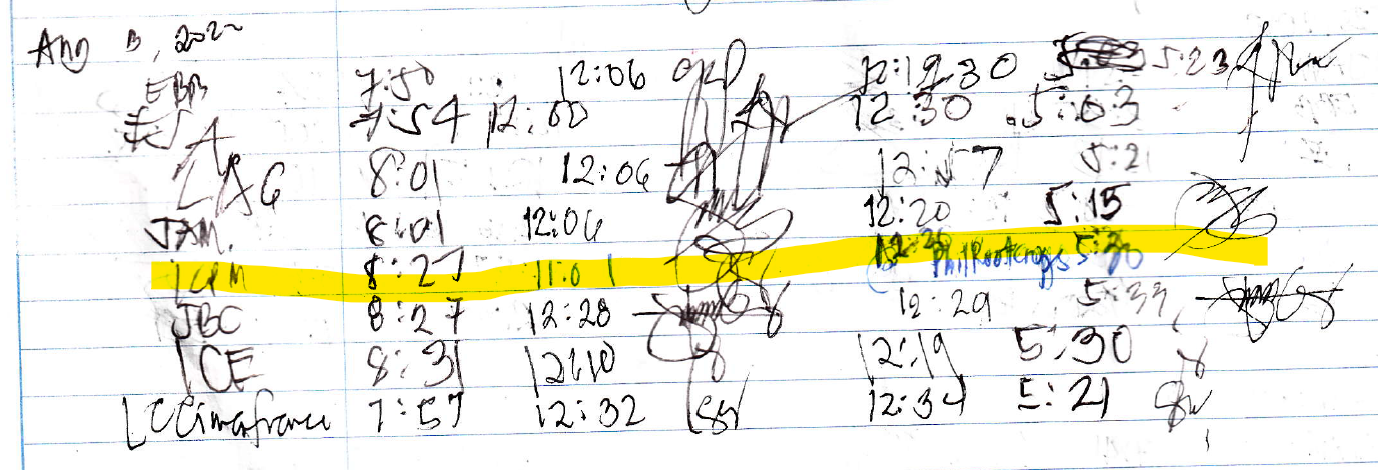 Aug 2022
EBB 7:50 12:06 12:30 5:23
7:54 12:00 12:30 5:03
LAG 8:01 12:06 5:2
JAM. 8:01 12:06 12:20 5:15
8:27 11:01 PhilRootcrops 5:30
JBC 8:27 12:28 12:29 5:33
ICE 8:31 12:10 12:19 5:30
LCCimafranca 7:57 12:32 12:34 5:21